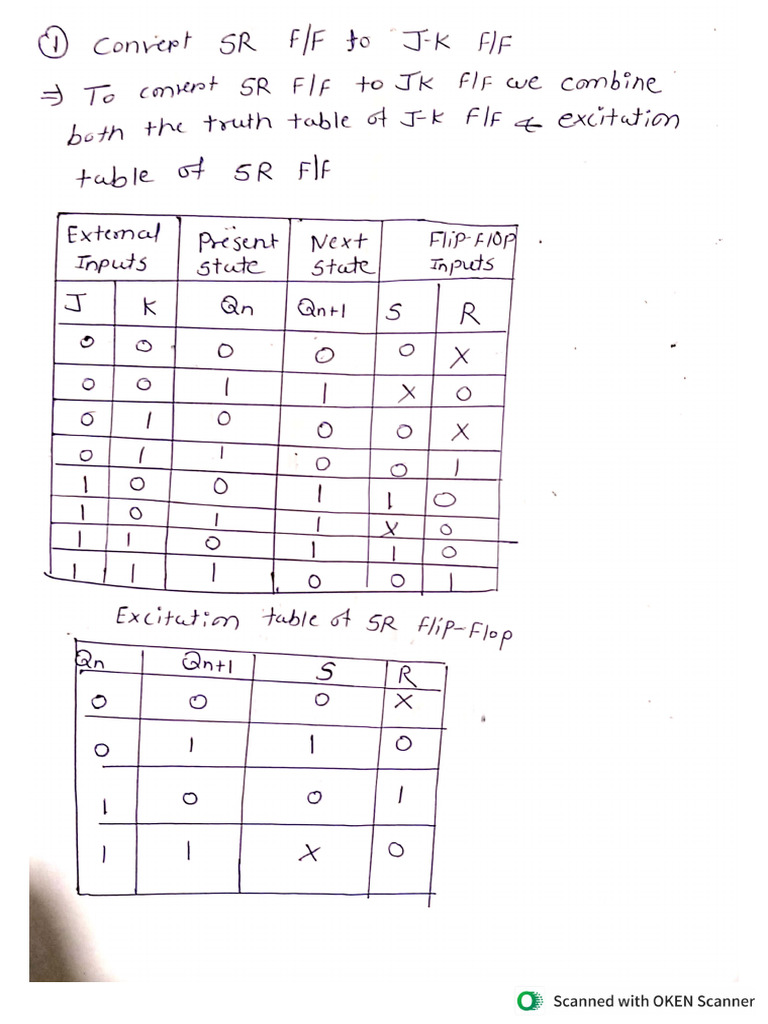 ① Convert SR F/F to J-K F/F
⇒ To convert SR F/F to JK F/F we combine
both the truth table of J-K F/F & excitation
table of SR F/F
External Inputs | Present State | Next State | Flip-Flop Inputs
J K Qn Qn+1 S R
0 0 0 0 0 X
0 0 1 1 X 0
0 1 0 0 0 X
0 1 1 0 0 1
1 0 0 1 1 0
1 0 1 1 X 0
1 1 0 1 1 0
1 1 1 0 0 1
Excitation table of SR Flip-Flop
Qn Qn+1 S R
0 0 0 X
0 1 1 0
1 0 0 1
1 1 X 0
Scanned with OKEN Scanner